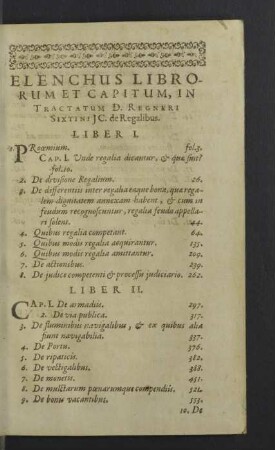 ELENCHUS LIBRO-
RUM ET CAPITUM, IN
TRACTATUM D. REGNERI
SIXTINI JC. de Regalibus.
LIBER I.
1. PRoœmium. fol.3.
CAP. I. Unde regalia dicantur, & quæ sint?
fol.10.
2. De divisione Regalium. 26.
3. De differentiis inter regalia eaque bona, quæ rega-
lem dignitatem annexam habent, & cum in
feudum recognoscuntur, regalia feuda appella-
ri solent. 44.
4. Quibus regalia competant. 64.
5. Quibus modis regalia acquirantur. 135.
6. Quibus modis regalia amittantur. 209.
7. De actionibus. 239.
8. De judice competenti & processu judiciario. 262.
LIBER II.
CAP. I. De armadiis. 297.
2. De via publica. 317.
3. De fluminibus navigabilibus, & ex quibus alia
fiunt navigabilia. 337.
4. De Portu. 376.
5. De ripaticis. 382.
6. De vectigalibus. 388.
7. De monetis. 451.
8. De mulctarum pœnarumque compendiis. 521.
9. De bonis vacantibus. 533.
10. De